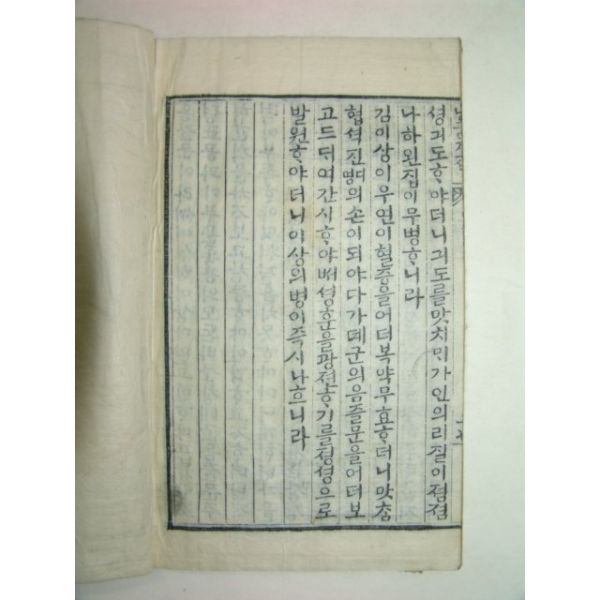 셩긔도ᄒᆞ야더니긔도를맛치ᄆᆡ가인의리질이졈졈
나하왼집이무병ᄒᆞ니라
김이상이우연이혈증을어더복약무효ᄒᆞ더니맛ᄎᆞᆷ
협셕진
의손이되야다가뎨군의음즐문을어더보
고드듸여간시ᄒᆞ야
셩을광젼ᄒᆞ기를졍셩으로
발원ᄒᆞ야더니이상의병이즉시나흐니라